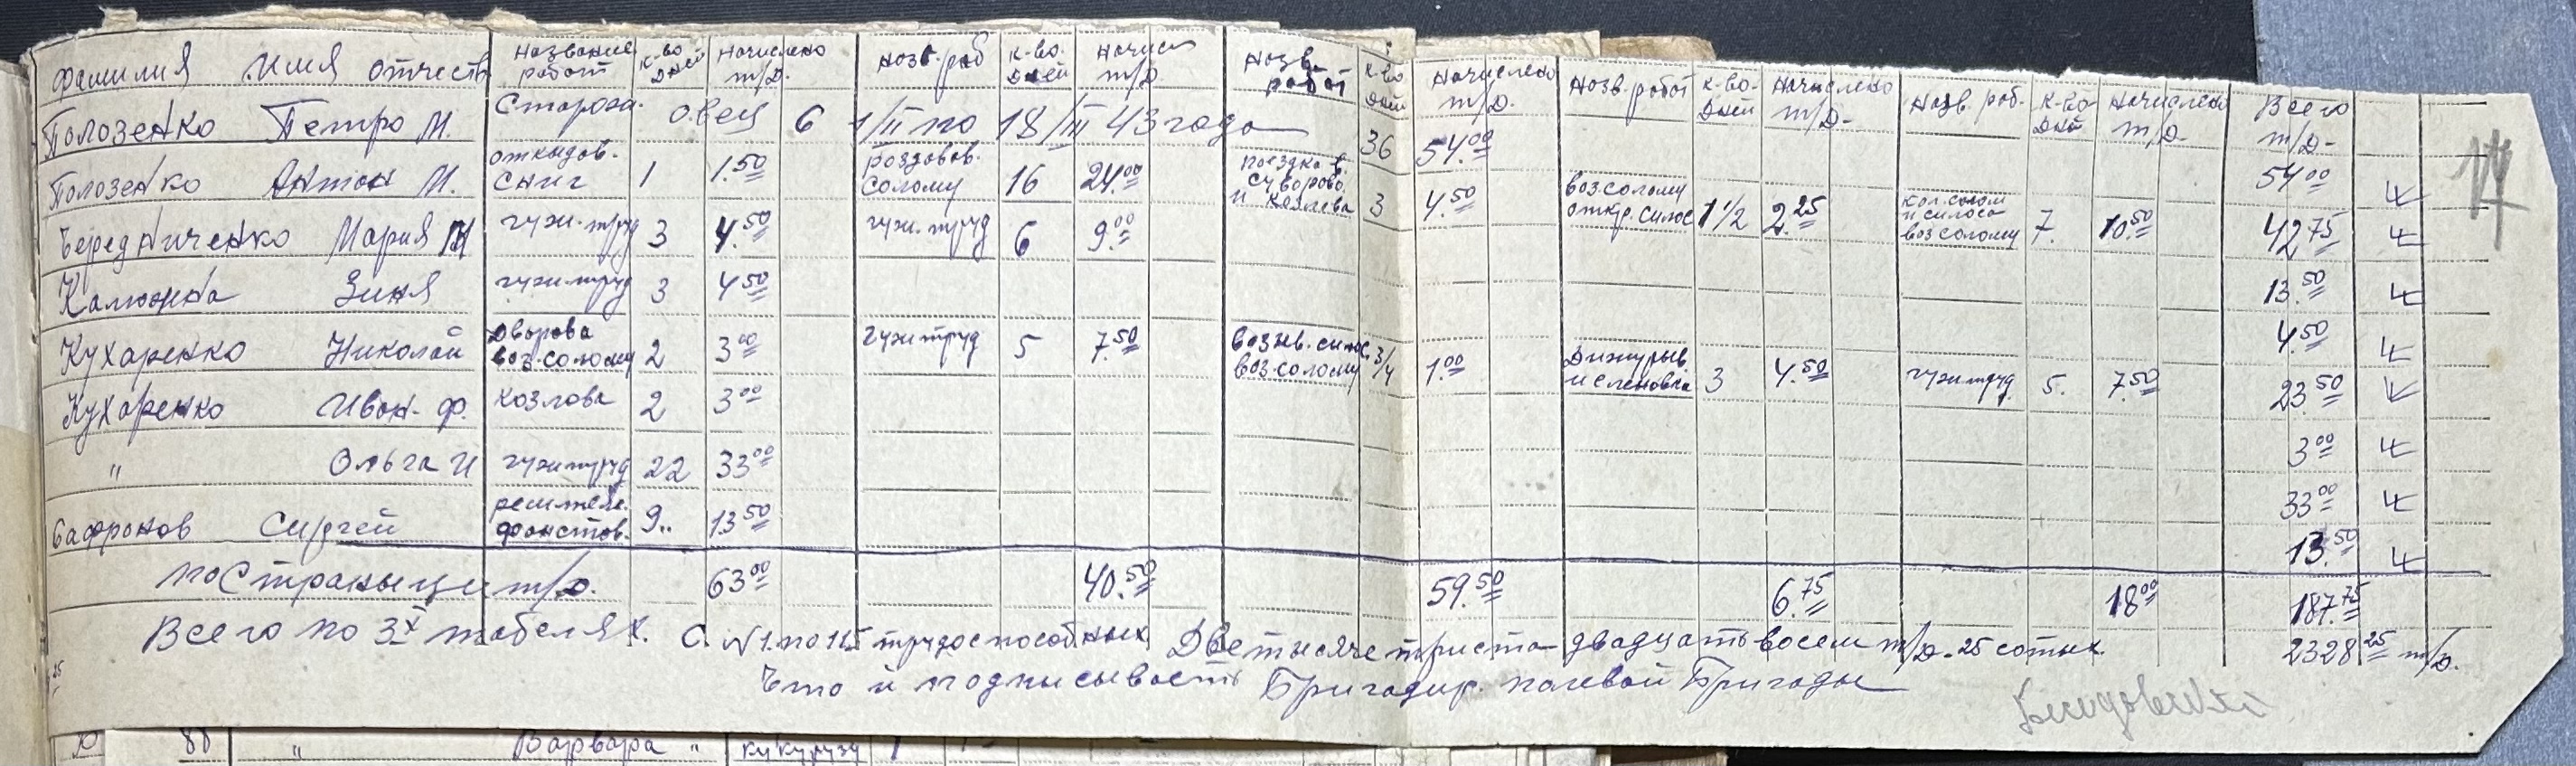 фамилия Имя отчеств Название работ к-во дней Начислено т/д. Назв. раб к-во. дней Начисл т/д. Назв. работ к-во дней Начислено т/д. Назв. работ к-во- дней Начислено т/д- Назв. раб. к-во- дней Начислено т/д- Всего т/д-
Полозенко Петро М. Сторожа. овец 6 1/II по 18/III 43 года 36 54.00 54 00
Полозенко Антон М. откидов. сниг 1 1.50 роздовов. солому 16 24.00 поездка в. Суворово. и Козлева 3 4.50 воз. солому откр. силос 1 1/2 2.25 кол. солом и силоса воз солому 7. 10.50 42 75
Бередниченко Мария гужи. труд 3 4.50 гужи. труд 6 9.00 13.50
Калюжна Зиня гужитруд 3 4 50 4.50
Кухаренко Николай дворова воз. солому 2 3 00 гужитруд 5 7.50 воз. солому 3/4 1.00 Дижурыв. 3 4.50 гужитруд 5. 7.50 23.50
Кухаренко Иван. ф. Козлова 2 3 00 3 00
" Ольга И гужитруд 22 33 00 33 00
Сафронов Сиргей 9.. 13 50 13.50
по Страныце т/д. 63 00 40.50 59.50 6.75 18 00 187.75
Всего по 3х табелях. С. №1. по 115 трудоспособных Две тысяче триста двадцать восем т/д- 25 сотых. 2328 25 т/д.
25
Что и подписываеть Бригадир. полевой Бригады
88 " Варвара " кукурузу 1